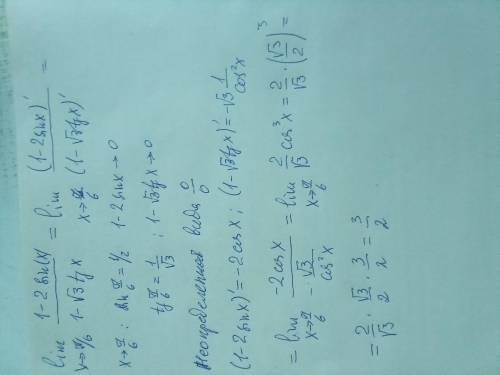 lim x→π/6 (1-2sin(x))/(1-√3 tg x) = lim x→π/6 (1-2sinx)'/(1-√3 tg x)' =
x→π/6 : sin π/6 = 1/2 1-2sinx→0
tg π/6 = 1/√3 ; 1-√3 tg x→0
Неопределенность вида 0/0
(1-2sinx)' = -2cosx ; (1-√3 tg x)' = -√3 1/cos²x
= lim x→π/6 -2cosx/(-√3/cos²x) = lim x→π/6 2/√3 cos³x = 2/√3 · (√3/2)³ =
= 2/√3 · √3/2 · 3/2 = 3/2